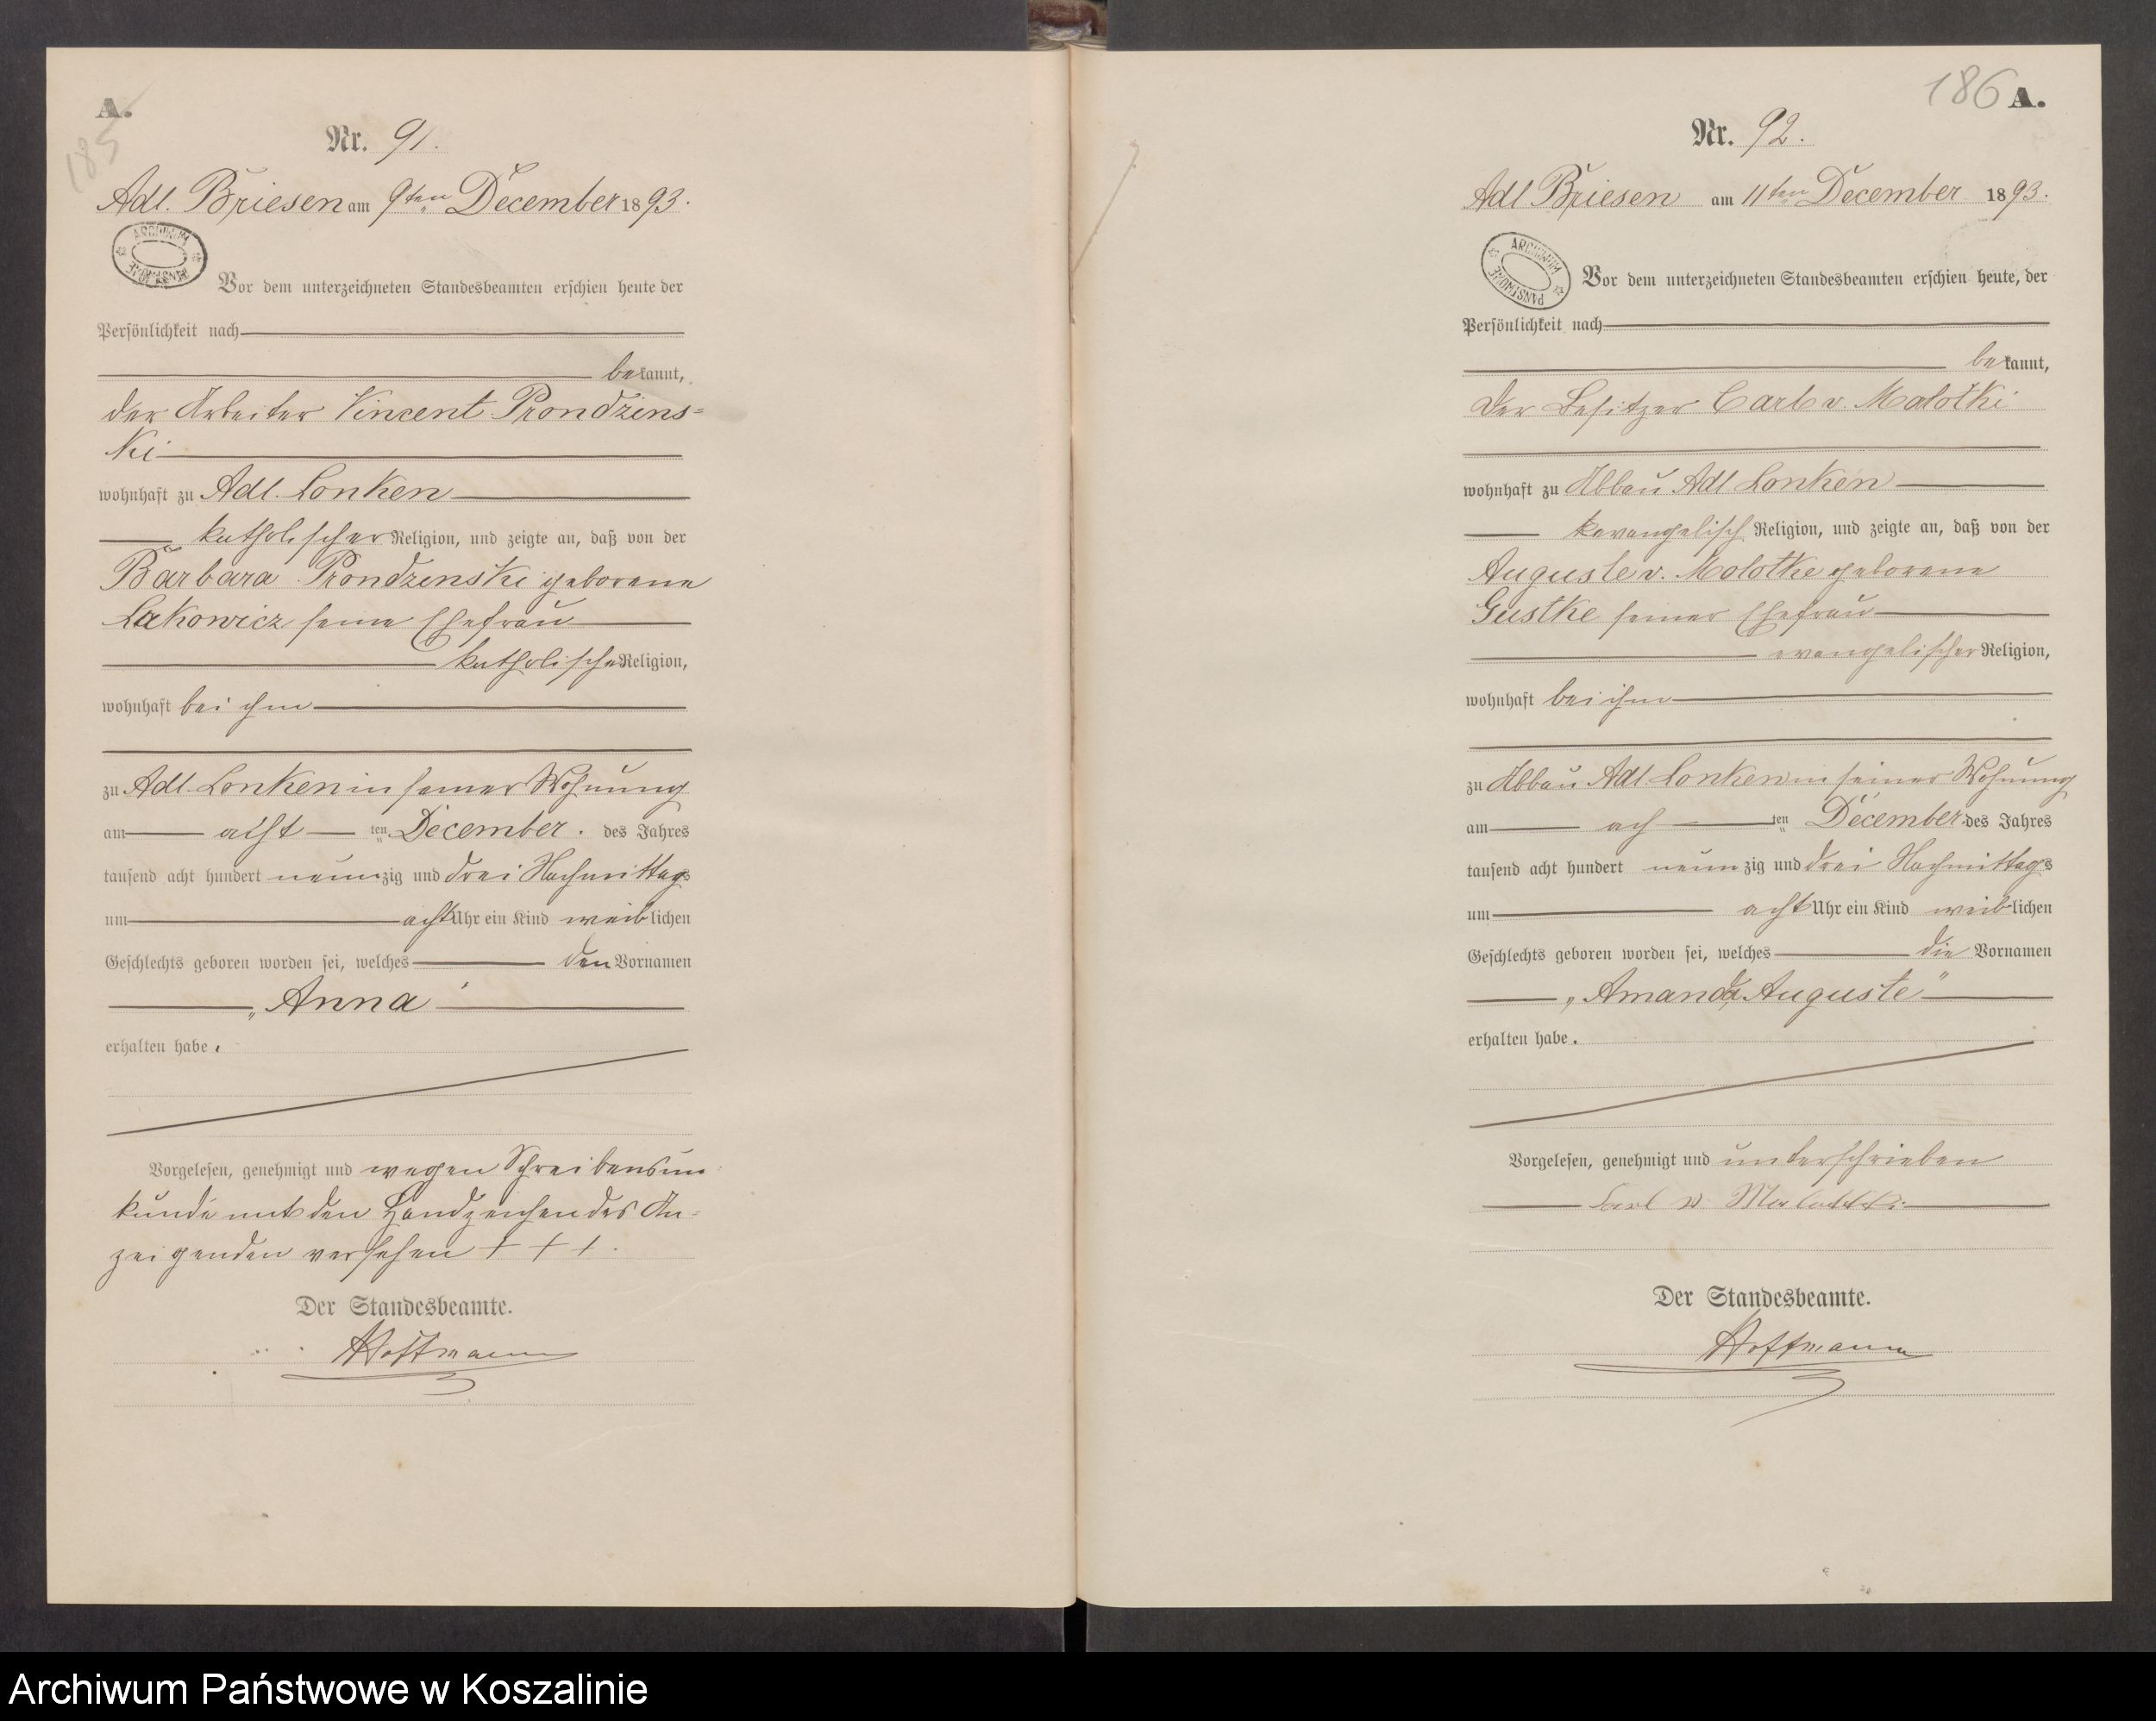 A.
185
Nr. 91.
Adl. Briesen am 9ten December 1893.
ARCHIWUM PAŃSTWOWE
Vor dem unterzeichneten Standesbeamten erschien heute der
Persönlichkeit nach
bekannt,
der Arbeiter Vincent Prondzins=
ki
wohnhaft zu Adl. Lonken
katholischer Religion, und zeigte an, daß von der
Barbara Prondzinski geborene
Lakowicz seine Ehefrau
katholischer Religion,
wohnhaft bei ihm
zu Adl. Lonken in seiner Wohnung
am acht ten December. des Jahres
tausend acht hundert neunzig und drei Nachmittags
um acht Uhr ein Kind weiblichen
Geschlechts geboren worden sei, welches den Vornamen
„Anna"
erhalten habe.
Vorgelesen, genehmigt und wegen Schreibensun=
kunde mit den Handzeichen des An=
zeigenden versehen + + +.
Der Standesbeamte.
Hoffmann
186 A.
Nr. 92.
Adl Briesen am 11ten December 1893.
ARCHIWUM PAŃSTWOWE
Vor dem unterzeichneten Standesbeamten erschien heute, der
Persönlichkeit nach
bekannt,
der Besitzer Carl v. Malotki
wohnhaft zu Abbau Adl Lonken
evangelisch Religion, und zeigte an, daß von der
Auguste v. Molotke geborene
Gustke seiner Ehefrau
evangelischer Religion,
wohnhaft bei ihm
zu Abbau Adl. Lonken in seiner Wohnung
am ach ten December des Jahres
tausend acht hundert neunzig und drei Nachmittags
um acht Uhr ein Kind weiblichen
Geschlechts geboren worden sei, welches die Vornamen
„Amanda Auguste"
erhalten habe.
Vorgelesen, genehmigt und unterschrieben
Carl v. Malottki
Der Standesbeamte.
Hoffmann
Archiwum Państwowe w Koszalinie